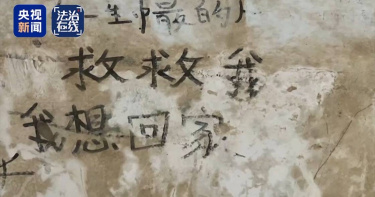 央视新闻 法治在线
一生中最的人
救救我
我想回家